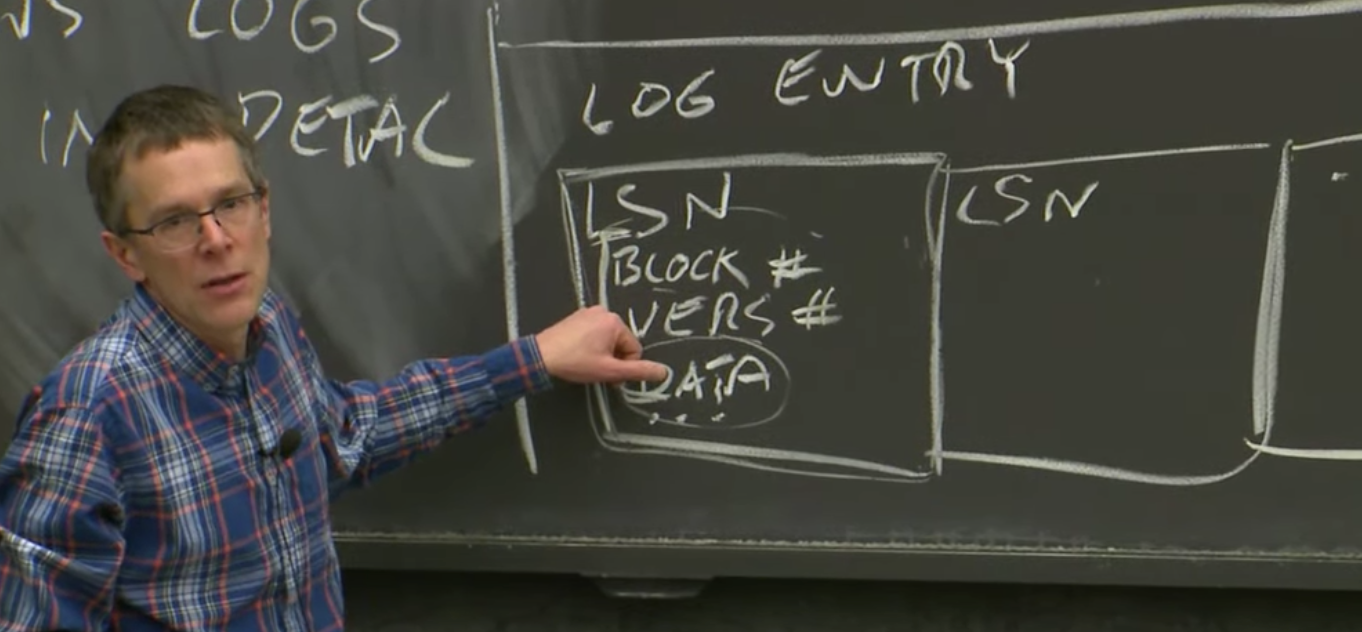 LOGS
IN DETAC
LOG ENTRY
LSN
BLOCK #
VERS #
DATA
...
LSN